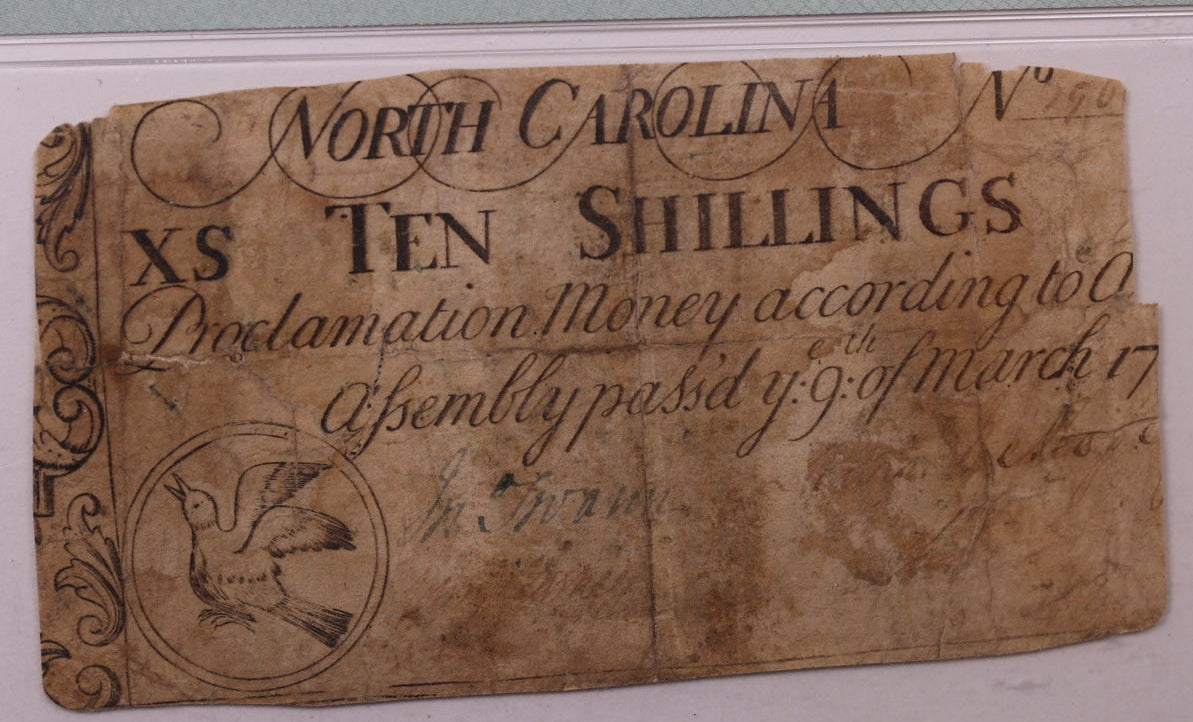 NORTH CAROLINA No
XS TEN SHILLINGS
Proclamation Money according to A
Assembly pass'd ye: 9th: of March 17
Jno Swann